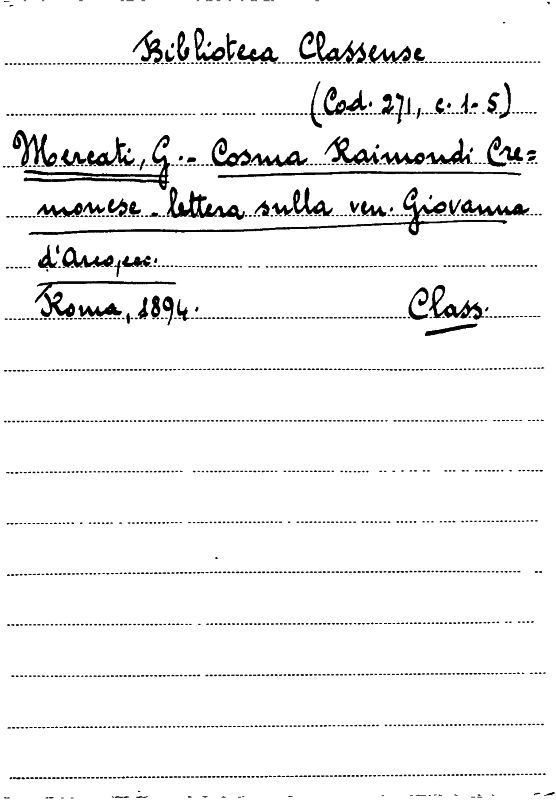 Biblioteca Classense
(Cod. 271, c. 1-5)
Mercati, G.- Cosma Raimondi Cre=
monese - lettera sulla ven. Giovanna
d'Arco, ecc.
Roma, 1894. Class.